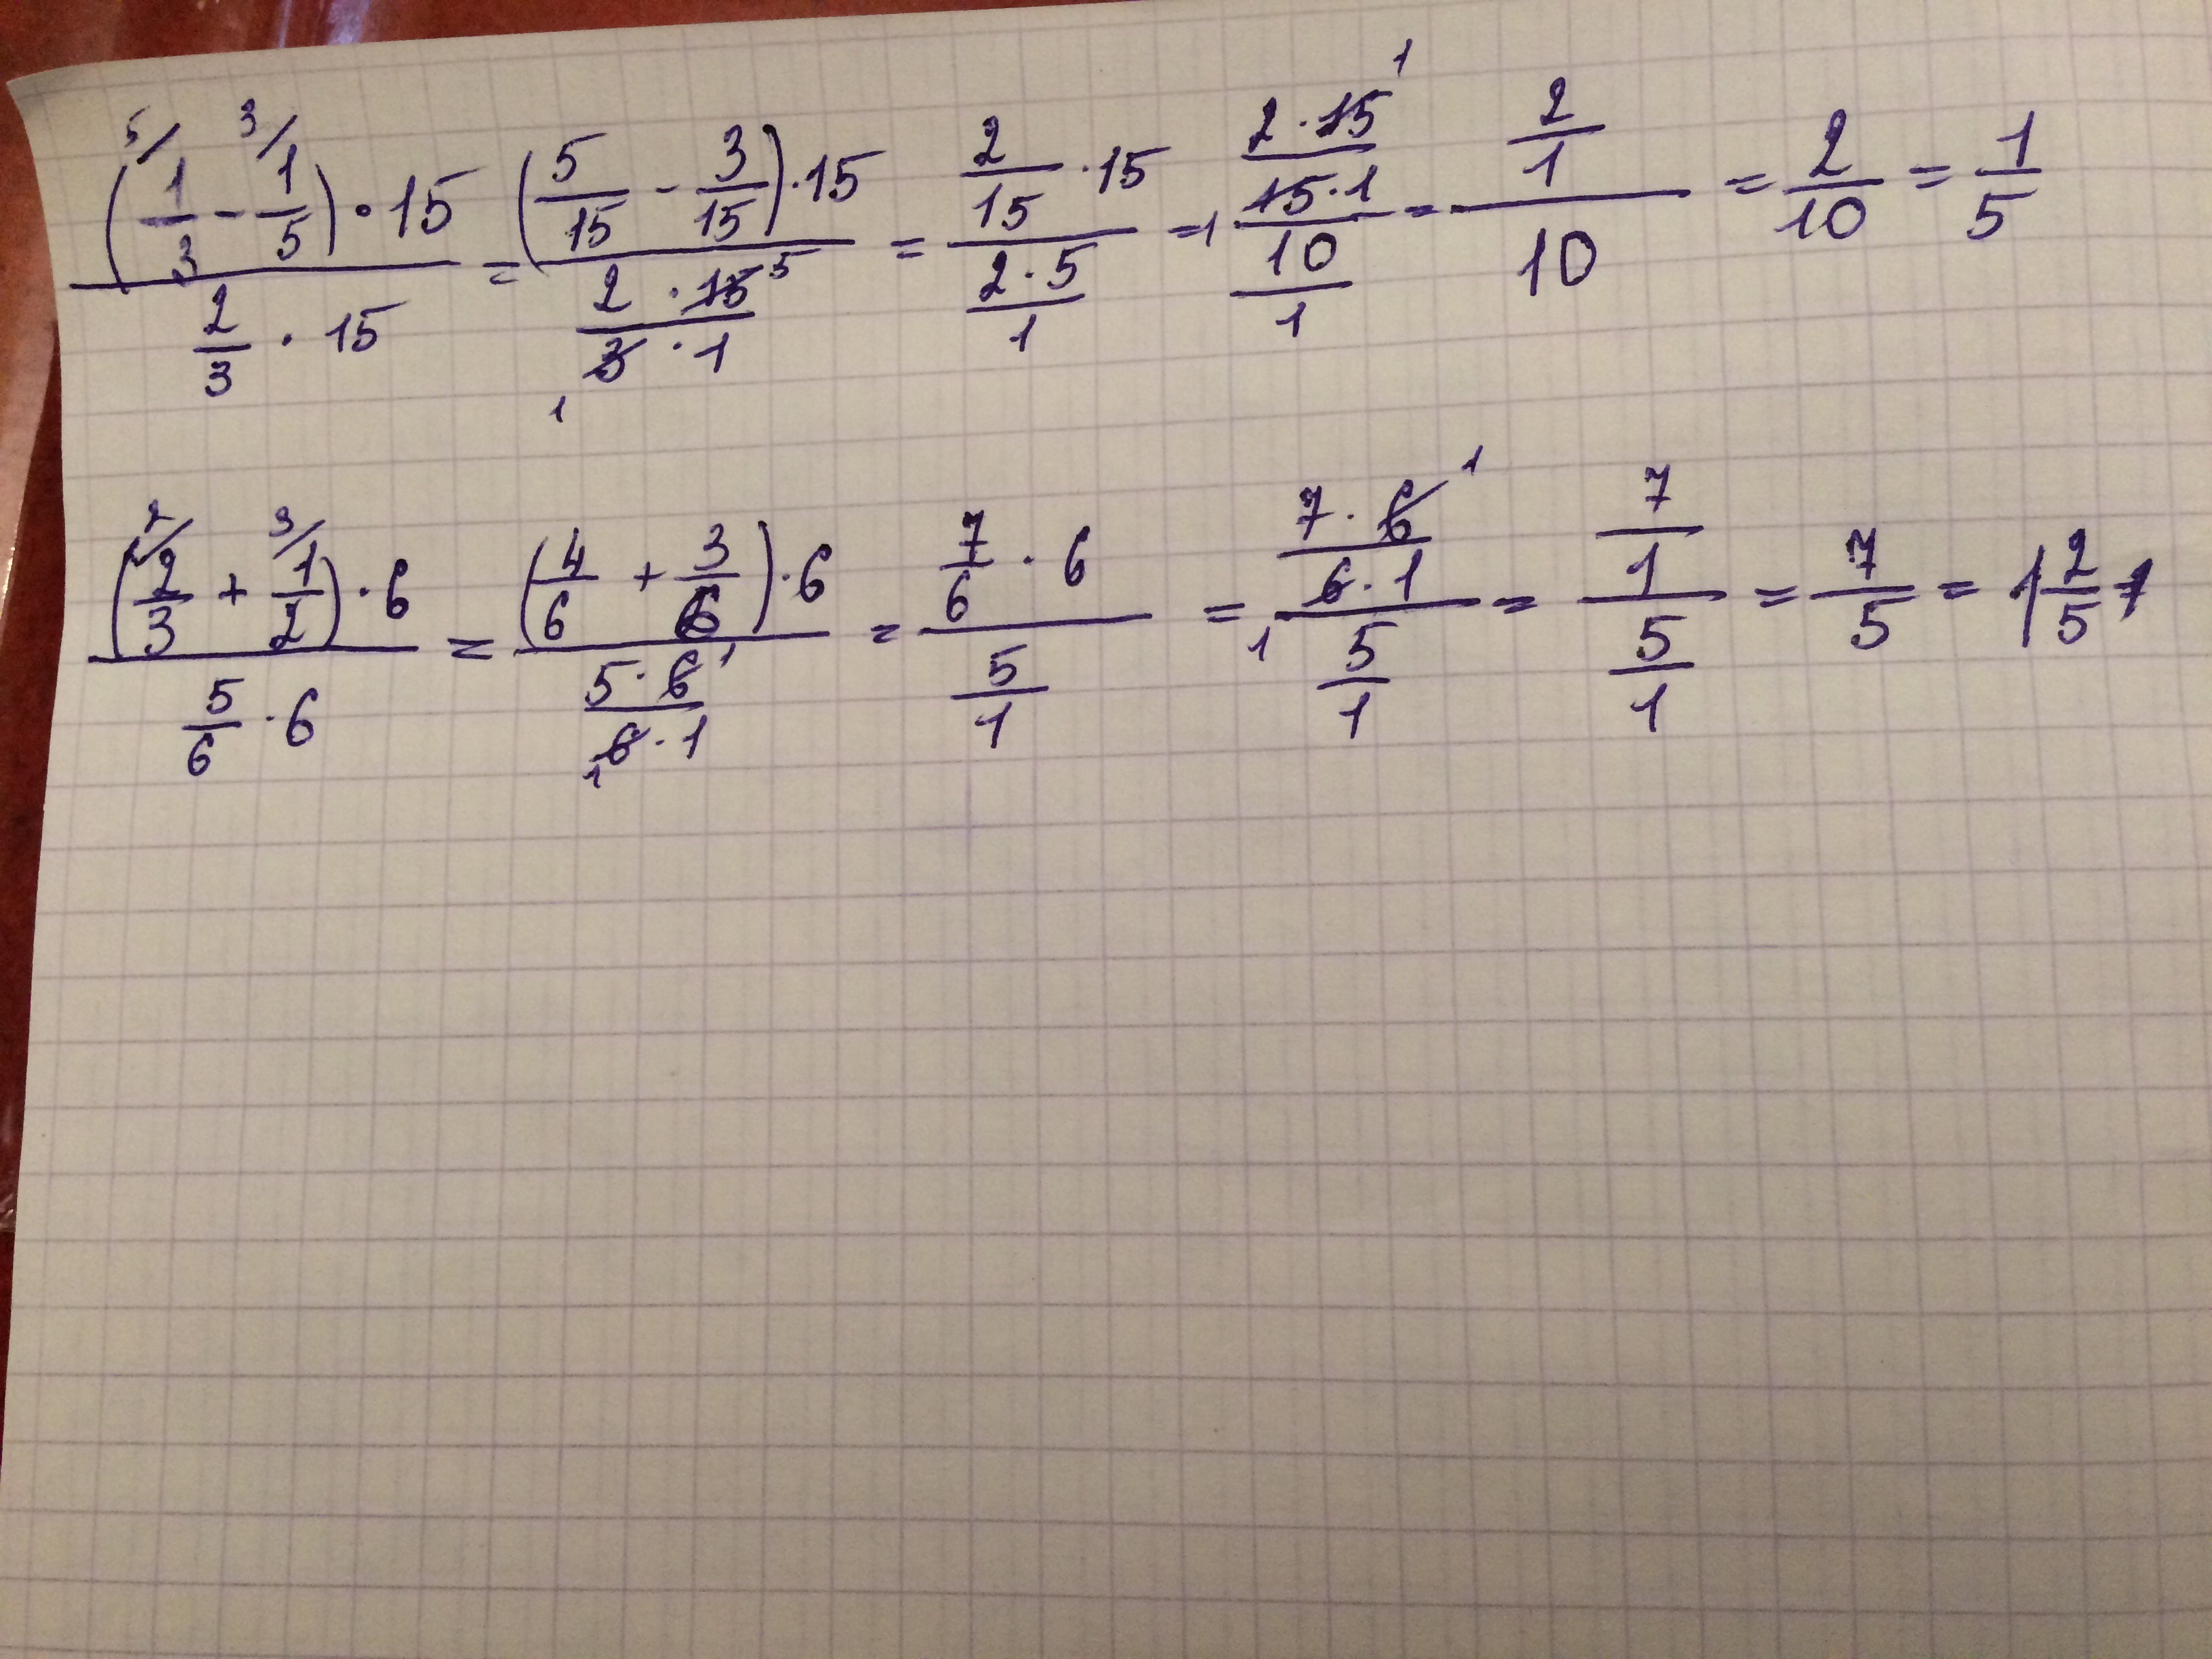 (⁵⁄1/3 - ³⁄1/5) · 15 / (2/3 · 15) = (5/15 - 3/15) · 15 / (2 · 15⁵ / 3₁ · 1) = (2/15 · 15) / (2 · 5 / 1) = (2 · 15¹ / ₁15 · 1) / (10/1) = (2/1) / 10 = 2/10 = 1/5
(²⁄2/3 + ³⁄1/2) · 6 / (5/6 · 6) = (4/6 + 3/6) · 6 / (5 · 6¹ / ₁6 · 1) = (7/6 · 6) / (5/1) = (7 · 6¹ / ₁6 · 1) / (5/1) = (7/1) / (5/1) = 7/5 = 1 2/5